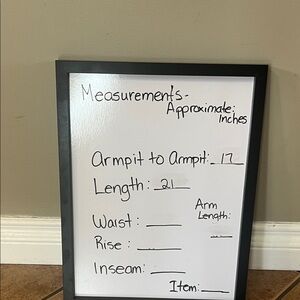 Measurements-
Approximate:
Inches
Armpit to Armpit: 17
Length: 21
Arm
Length:
Waist:
Rise:
Inseam:
Item: